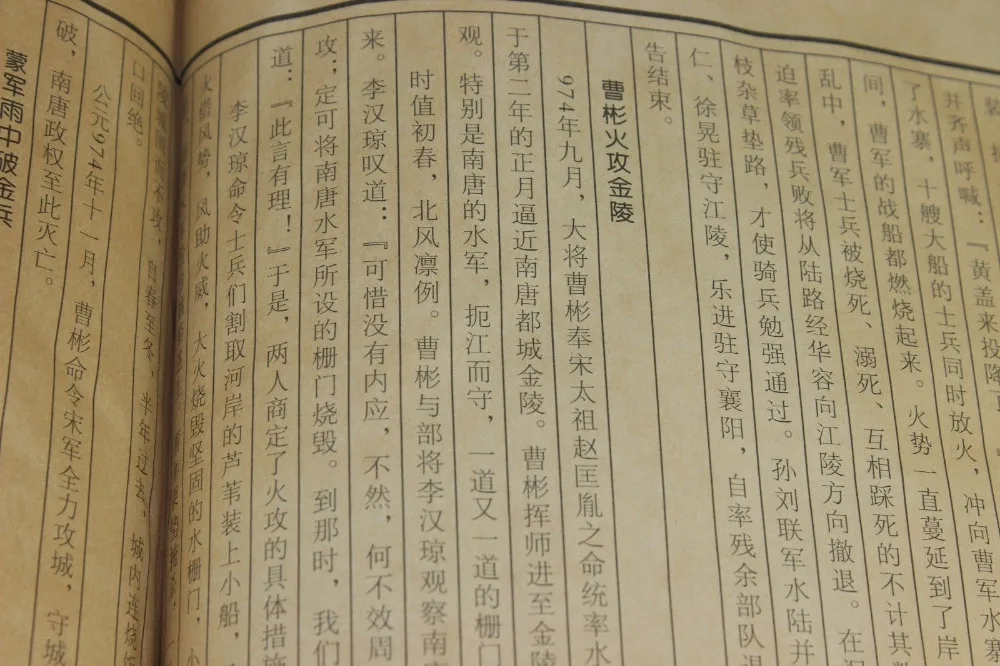 并齐声呼喊：『黄盖来投降
了水寨，十艘大船的士兵同时放火，冲向曹军水寨
间，曹军的战船都燃烧起来。火势一直蔓延到了岸
乱中，曹军士兵被烧死、溺死、互相踩死的不计其
迫率领残兵败将从陆路经华容向江陵方向撤退。在
枝杂草垫路，才使骑兵勉强通过。孙刘联军水陆并
仁、徐晃驻守江陵，乐进驻守襄阳，自率残余部队退
告结束。
曹彬火攻金陵
974年九月，大将曹彬奉宋太祖赵匡胤之命统率水
于第二年的正月逼近南唐都城金陵。曹彬挥师进至金陵
观。特别是南唐的水军，扼江而守，一道又一道的栅门
时值初春，北风凛例。曹彬与部将李汉琼观察南
来。李汉琼叹道：『可惜没有内应，不然，何不效周
攻；定可将南唐水军所设的栅门烧毁。到那时，我们
道：『此言有理！』于是，两人商定了火攻的具体措施
李汉琼命令士兵们割取河岸的芦苇装上小船，
火借风势，风助火威，大火烧毁坚固的水栅门，小
自春至冬，半年过去，城内连烧
口回绝。
公元974年十一月，曹彬命令宋军全力攻城，守城
破，南唐政权至此灭亡。
蒙军雨中破金兵